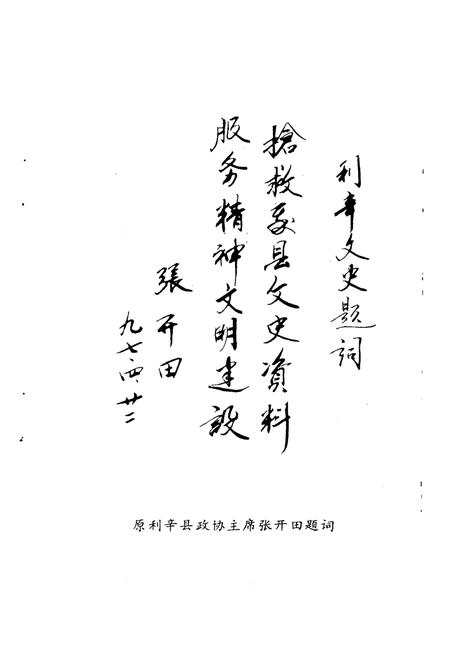 利辛文史题词
搶救我县文史資料
服务精神文明建設
張开田
九七·四·廿二
原利辛县政协主席张开田题词